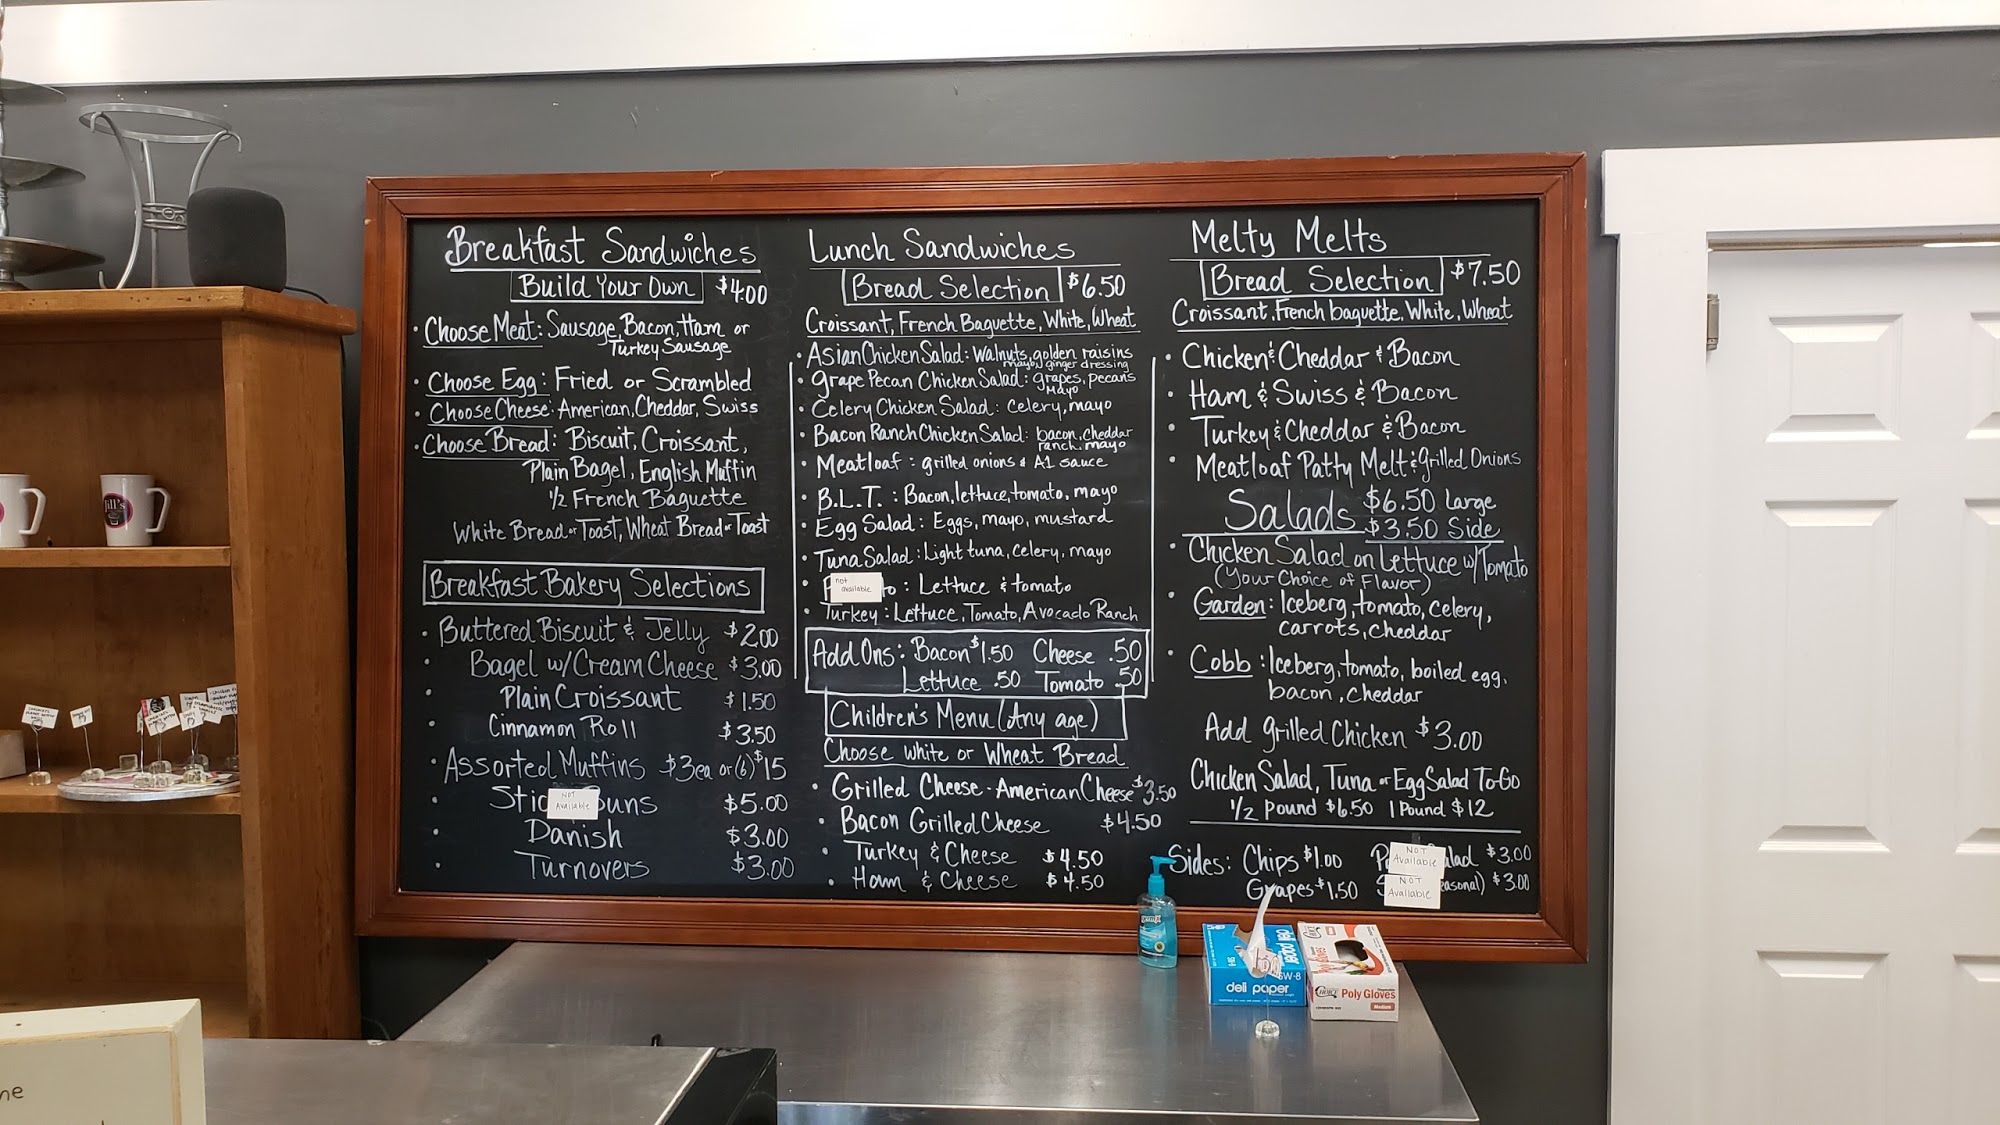 Breakfast Sandwiches
Build Your Own $4.00
• Choose Meat: Sausage, Bacon, Ham or
Turkey Sausage
• Choose Egg: Fried or Scrambled
• Choose Cheese: American, Cheddar, Swiss
• Choose Bread: Biscuit, Croissant,
Plain Bagel, English Muffin
1/2 French Baguette
White Bread or Toast, Wheat Bread or Toast
Breakfast Bakery Selections
• Buttered Biscuit & Jelly $2.00
• Bagel w/Cream Cheese $3.00
• Plain Croissant $1.50
• Cinnamon Roll $3.50
• Assorted Muffins $3ea or (6) $15
• Buns $5.00
NOT Available
• Danish $3.00
• Turnovers $3.00
Lunch Sandwiches
Bread Selection $6.50
Croissant, French Baguette, White, Wheat
• Asian Chicken Salad: Walnuts, golden raisins
mayo, ginger dressing
• Grape Pecan Chicken Salad: grapes, pecans
Mayo
• Celery Chicken Salad: celery, mayo
• Bacon Ranch Chicken Salad: bacon, cheddar
ranch, mayo
• Meatloaf: grilled onions & A1 sauce
• B.L.T.: Bacon, lettuce, tomato, mayo
• Egg Salad: Eggs, mayo, mustard
• Tuna Salad: Light tuna, celery, mayo
• : Lettuce & tomato
not available
• Turkey: Lettuce, Tomato, Avocado Ranch
Add Ons: Bacon $1.50 Cheese .50
Lettuce .50 Tomato .50
Children's Menu (Any age)
Choose White or Wheat Bread
• Grilled Cheese - American Cheese $3.50
• Bacon Grilled Cheese $4.50
• Turkey & Cheese $4.50
• Ham & Cheese $4.50
Melty Melts
Bread Selection $7.50
Croissant, French baguette, White, Wheat
• Chicken & Cheddar & Bacon
• Ham & Swiss & Bacon
• Turkey & Cheddar & Bacon
• Meatloaf Patty Melt & Grilled Onions
Salads $6.50 Large
$3.50 Side
• Chicken Salad on Lettuce w/Tomato
(Your Choice of Flavor)
• Garden: Iceberg, tomato, celery,
carrots, cheddar
• Cobb: Iceberg, tomato, boiled egg,
bacon, cheddar
Add grilled Chicken $3.00
Chicken Salad, Tuna or Egg Salad To-Go
1/2 Pound $6.50 1 Pound $12
Sides: Chips $1.00 $3.00
NOT Available
Grapes $1.50 $3.00
NOT Available
Jill's
deli paper
SW-8
Poly Gloves
Medium